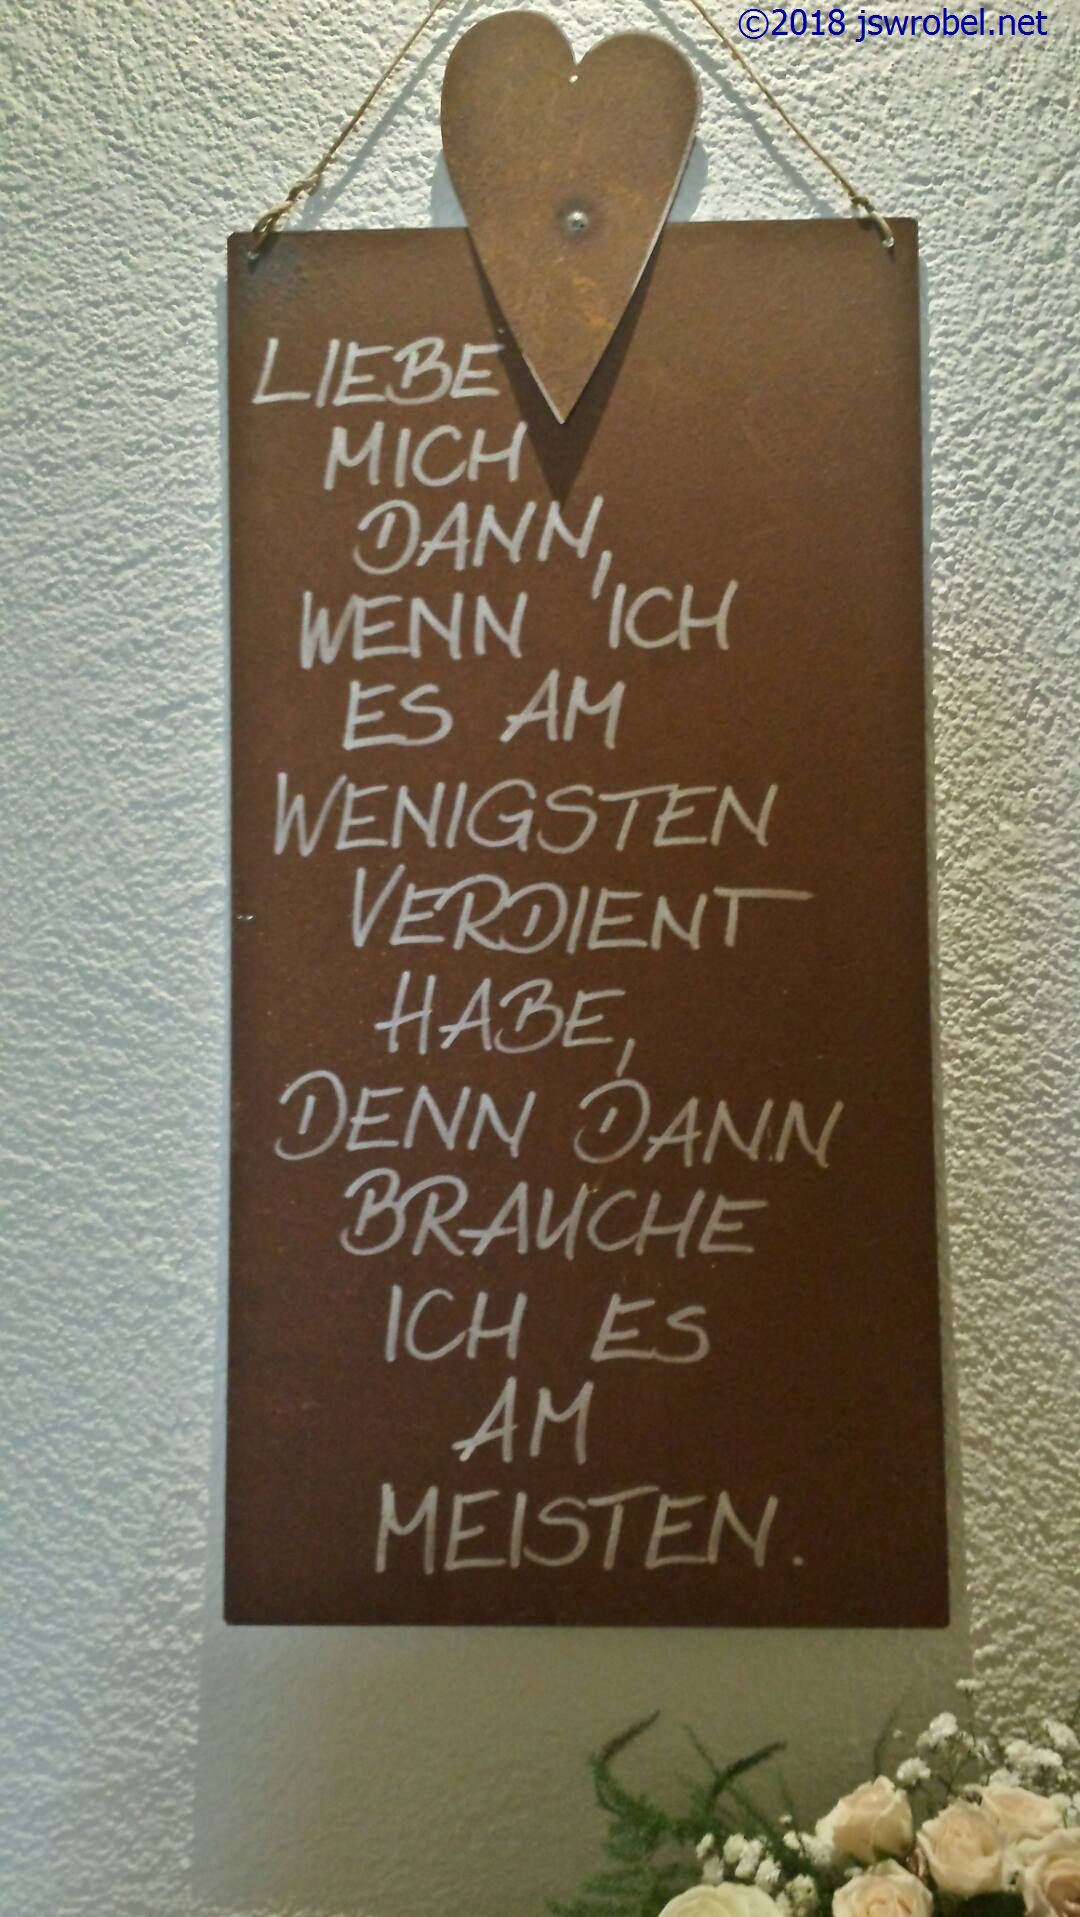 ©2018 jswrobel.net
LIEBE
MICH
DANN,
WENN ICH
ES AM
WENIGSTEN
VERDIENT
HABE,
DENN DANN
BRAUCHE
ICH ES
AM
MEISTEN.